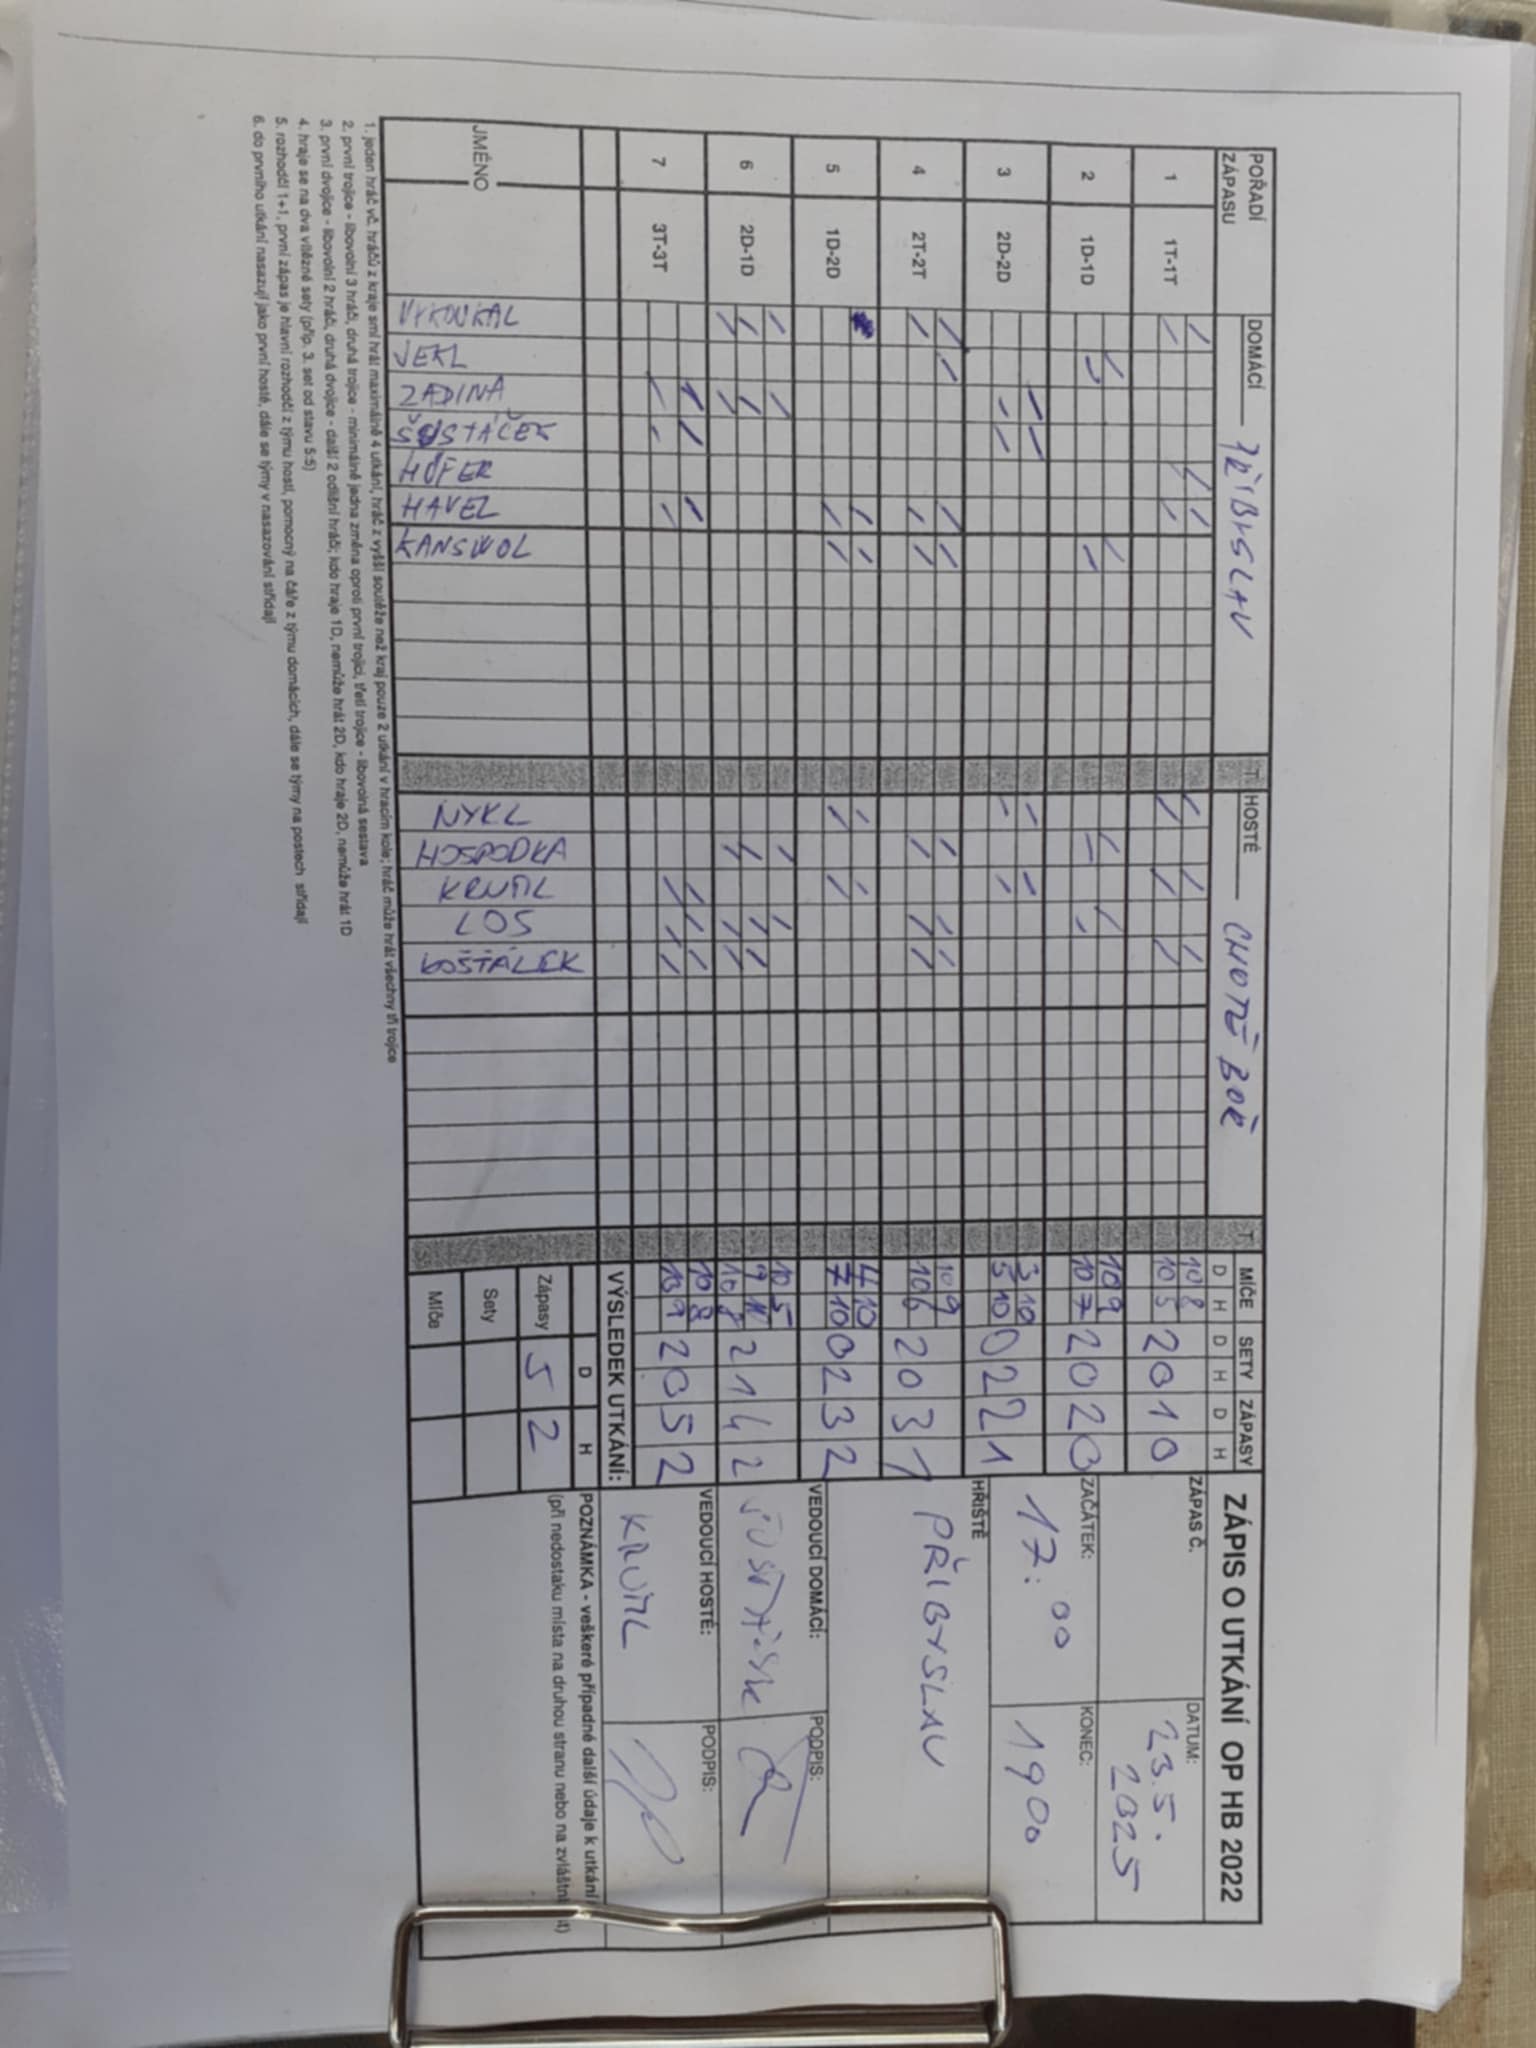 POŘADÍ ZÁPASU
DOMÁCÍ PŘIBYSLAV
T
HOSTÉ CHOTĚBOŘ
T
MÍČE SETY ZÁPASY
D H D H D H
1 1T-1T 10 8 10 5 2 0 1 0
2 1D-1D 10 9 10 7 2 0 2 0
3 2D-2D 3 10 5 10 0 2 2 1
4 2T-2T 10 9 10 6 2 0 3 1
5 1D-2D 4 10 7 10 0 2 3 2
6 2D-1D 10 5 9 10 10 8 2 1 4 2
7 3T-3T 10 8 10 9 2 0 5 2
JMÉNO
VYKOUKAL
JEKL
ZADINA
ŠUSTÁČEK
HÖFER
HAVEL
KANSWOL
NYKL
HOSPODKA
KRUTIL
LOS
KOŠŤÁLEK
VÝSLEDEK UTKÁNÍ:
D H
Zápasy 5 2
Sety
Míče
ZÁPIS O UTKÁNÍ OP HB 2022
ZÁPAS Č.
DATUM:
23.5.
2025
ZAČÁTEK:
17:00
KONEC:
1900
HŘIŠTĚ
PŘIBYSLAV
VEDOUCÍ DOMÁCÍ:
PODPIS:
VEDOUCÍ HOSTÉ:
KRUTIL
PODPIS:
POZNÁMKA - veškeré případné další údaje k utkání
(při nedostaku místa na druhou stranu nebo na
1. jeden hráč vč. hráčů z kraje smí hrát maximálně 4 utkání, hráč z vyšší soutěže než kraj pouze 2 utkání v hracím kole; hráč může hrát všechny tři trojice
2. první trojice - libovolní 3 hráči, druhá trojice - minimálně jedna změna oproti první trojici, třetí trojice - libovolná sestava
3. první dvojice - libovolní 2 hráči, druhá dvojice - další 2 odlišní hráči; kdo hraje 1D, nemůže hrát 2D, kdo hraje 2D, nemůže hrát 1D
4. hraje se na dva vítězné sety (příp. 3. set od stavu 5:5)
5. rozhodčí 1+1, první zápas je hlavní rozhodčí z týmu hostí, pomocný na čáře z týmu domácích, dále se týmy na postech střídají
6. do prvního utkání nasazují jako první hosté, dále se týmy v nasazování střídají